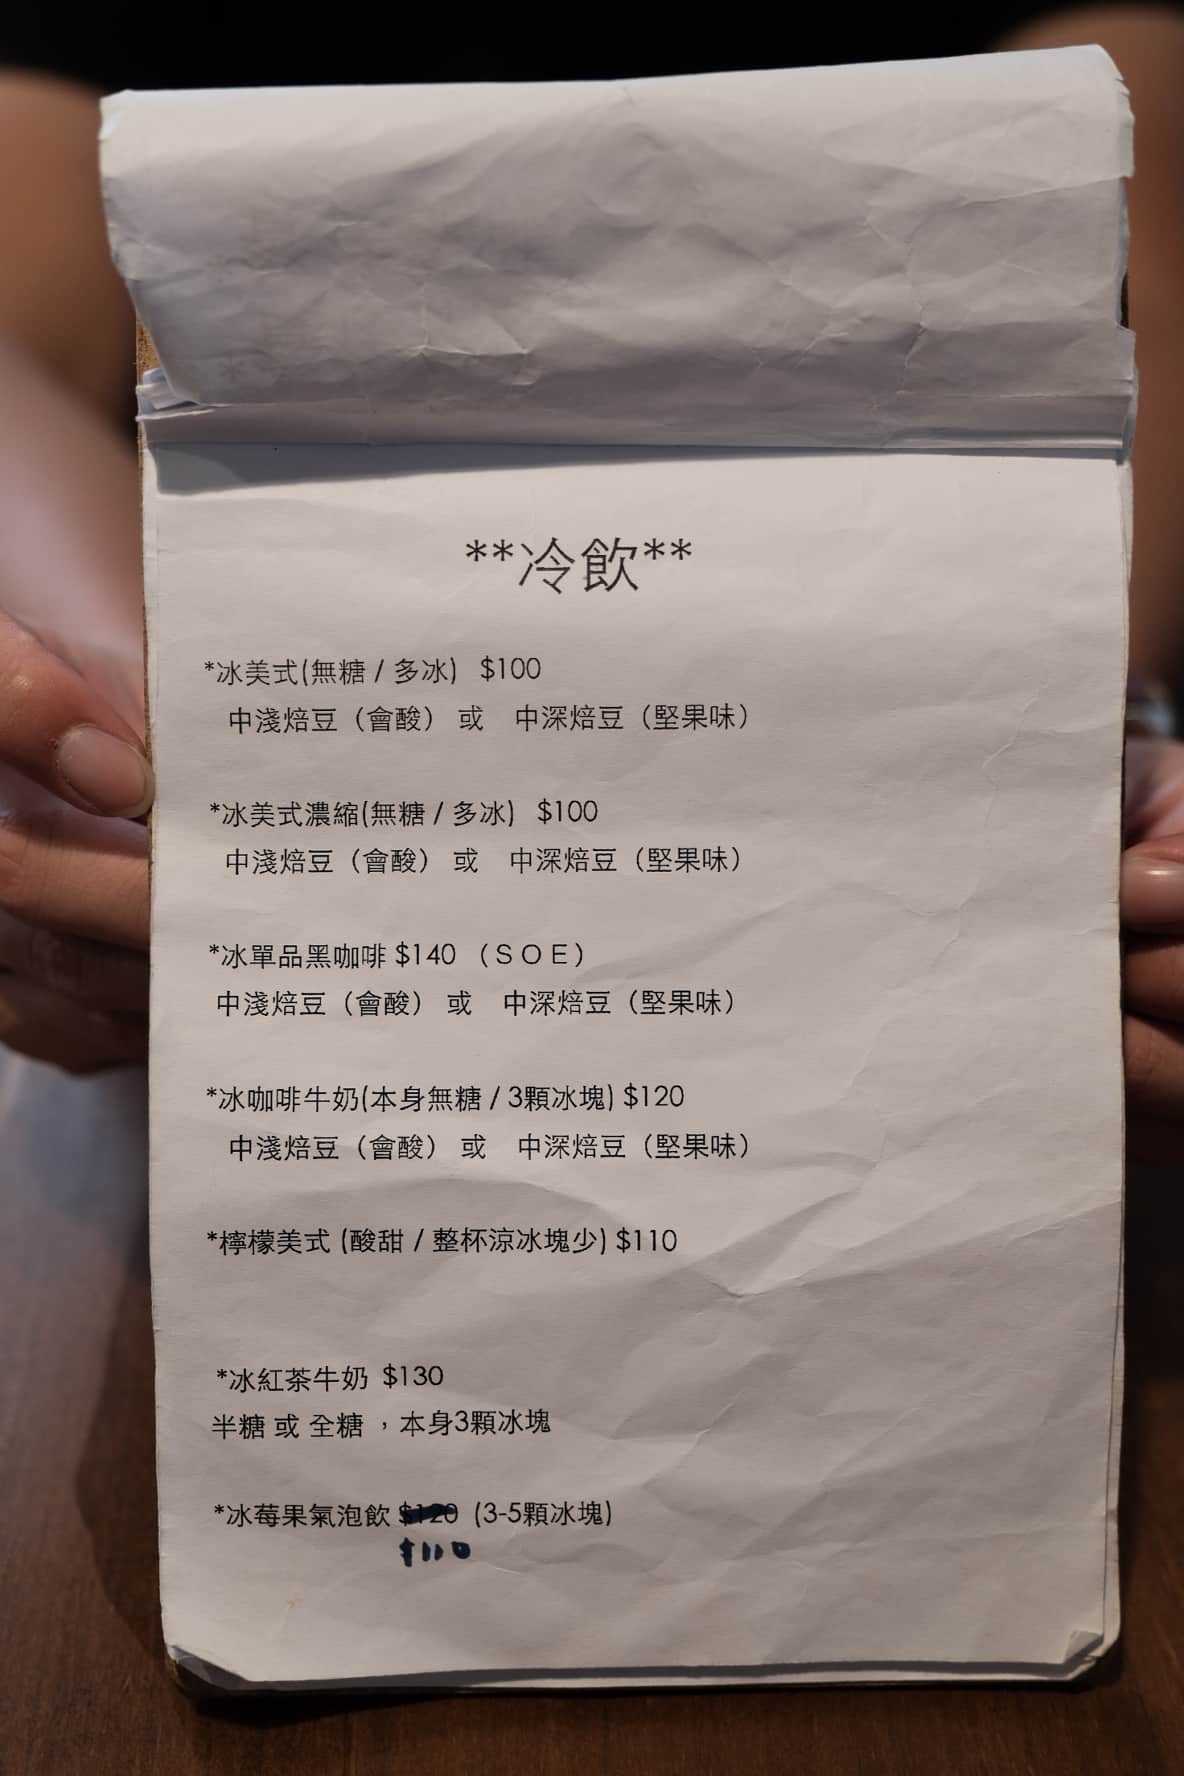 **冷飲**
*冰美式(無糖 / 多冰) $100
中淺焙豆（會酸） 或 中深焙豆（堅果味）
*冰美式濃縮(無糖 / 多冰) $100
中淺焙豆（會酸） 或 中深焙豆（堅果味）
*冰單品黑咖啡 $140 （ＳＯＥ）
中淺焙豆（會酸） 或 中深焙豆（堅果味）
*冰咖啡牛奶(本身無糖 / 3顆冰塊) $120
中淺焙豆（會酸） 或 中深焙豆（堅果味）
*檸檬美式 (酸甜 / 整杯涼冰塊少) $110
*冰紅茶牛奶 $130
半糖 或 全糖 ，本身3顆冰塊
*冰莓果氣泡飲 $120 (3-5顆冰塊)
$110